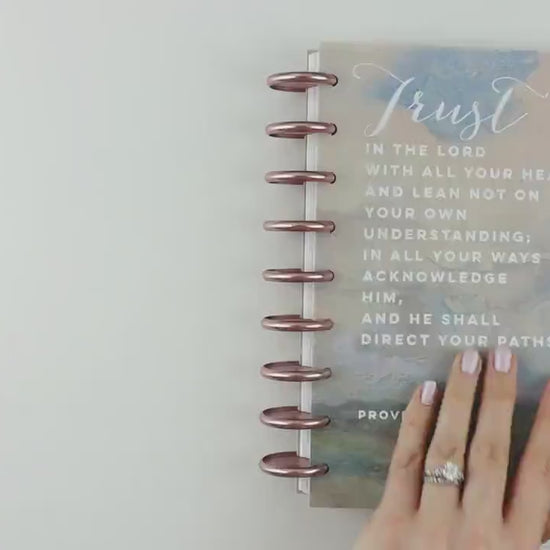 Trust
IN THE LORD
WITH ALL YOUR HEA
AND LEAN NOT ON
YOUR OWN
UNDERSTANDING;
IN ALL YOUR WAYS
ACKNOWLEDGE
HIM,
AND HE SHALL
DIRECT YOUR PATHS
PROV